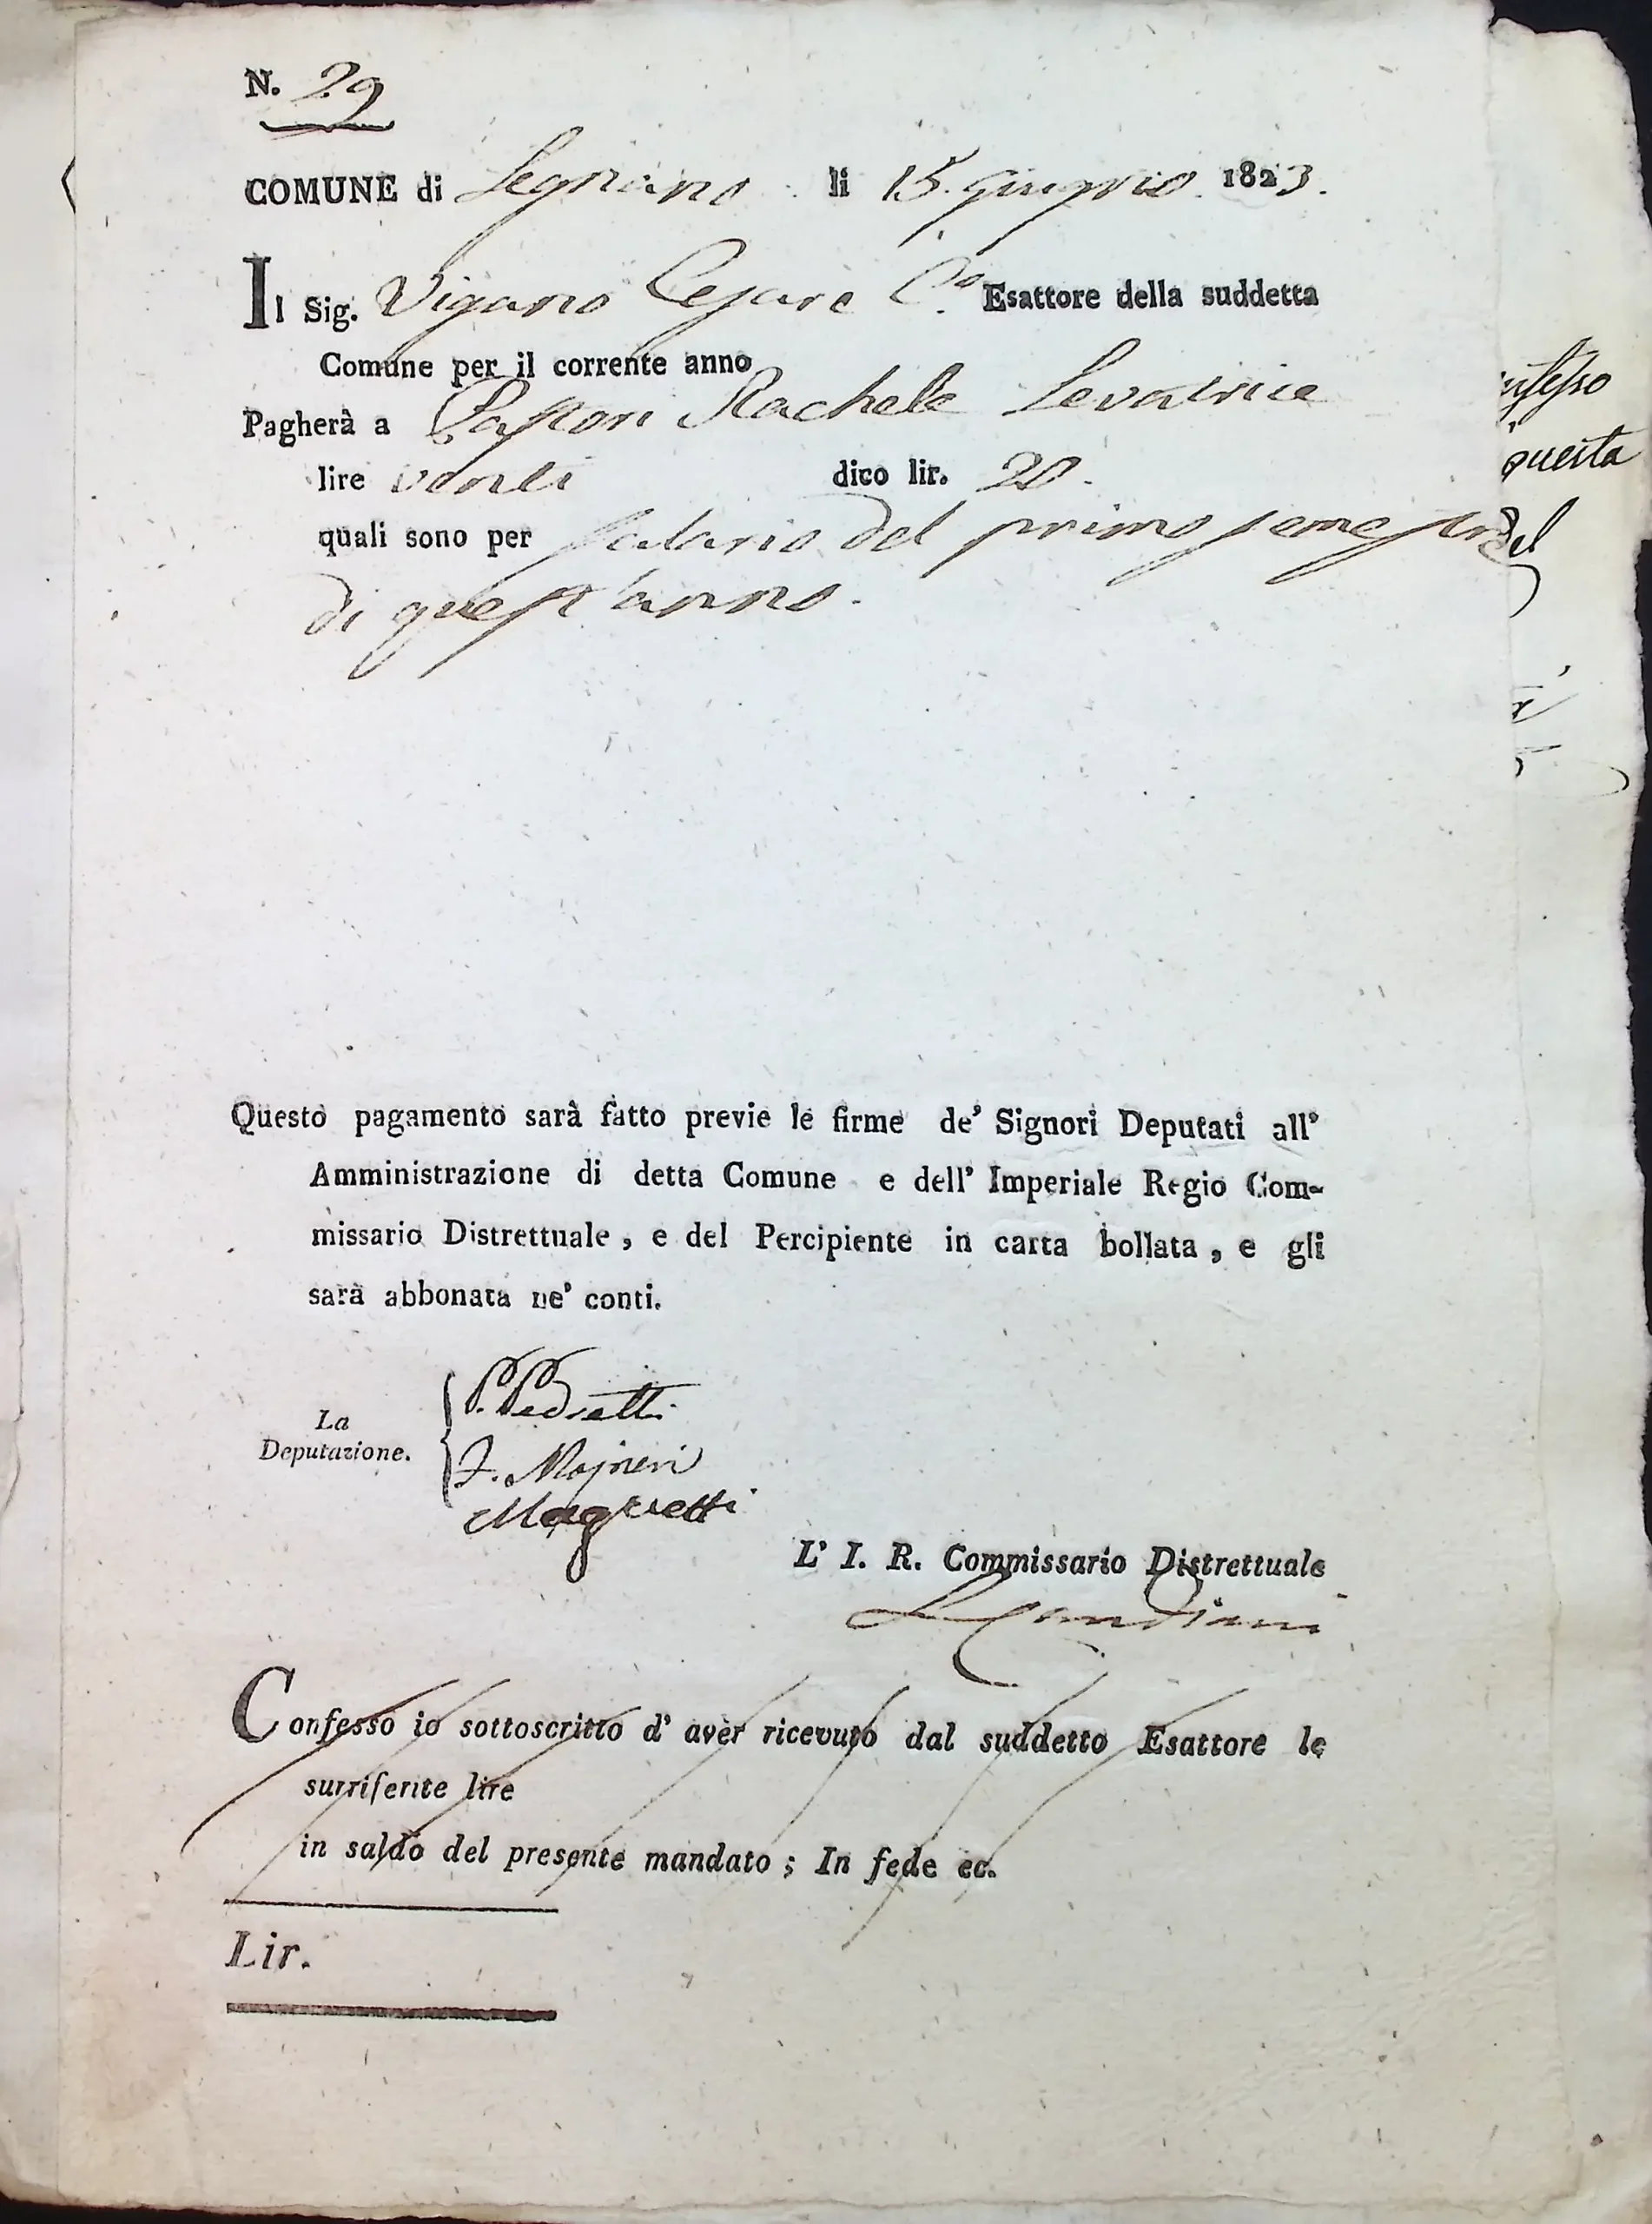 N. 29
COMUNE di Legnano li 15. giugnio. 1823.
Il Sig. Vigano Cesare C.º Esattore della suddetta
Comune per il corrente anno
Pagherà a Pastori Rachele Levatrice
lire venti dico lir. 20.
quali sono per salario del primo semestre
di quest'anno.
questa
del
Questo pagamento sarà fatto previe le firme de' Signori Deputati all'
Amministrazione di detta Comune e dell' Imperiale Regio Com-
missario Distrettuale, e del Percipiente in carta bollata, e gli
sarà abbonata ne' conti.
La
Deputazione.
P. Pedretti
Magretti
L' I. R. Commissario Distrettuale
Confesso io sottoscritto d' aver ricevuto dal suddetto Esattore le
surriferite lire
in saldo del presente mandato; In fede ec.
Lir.